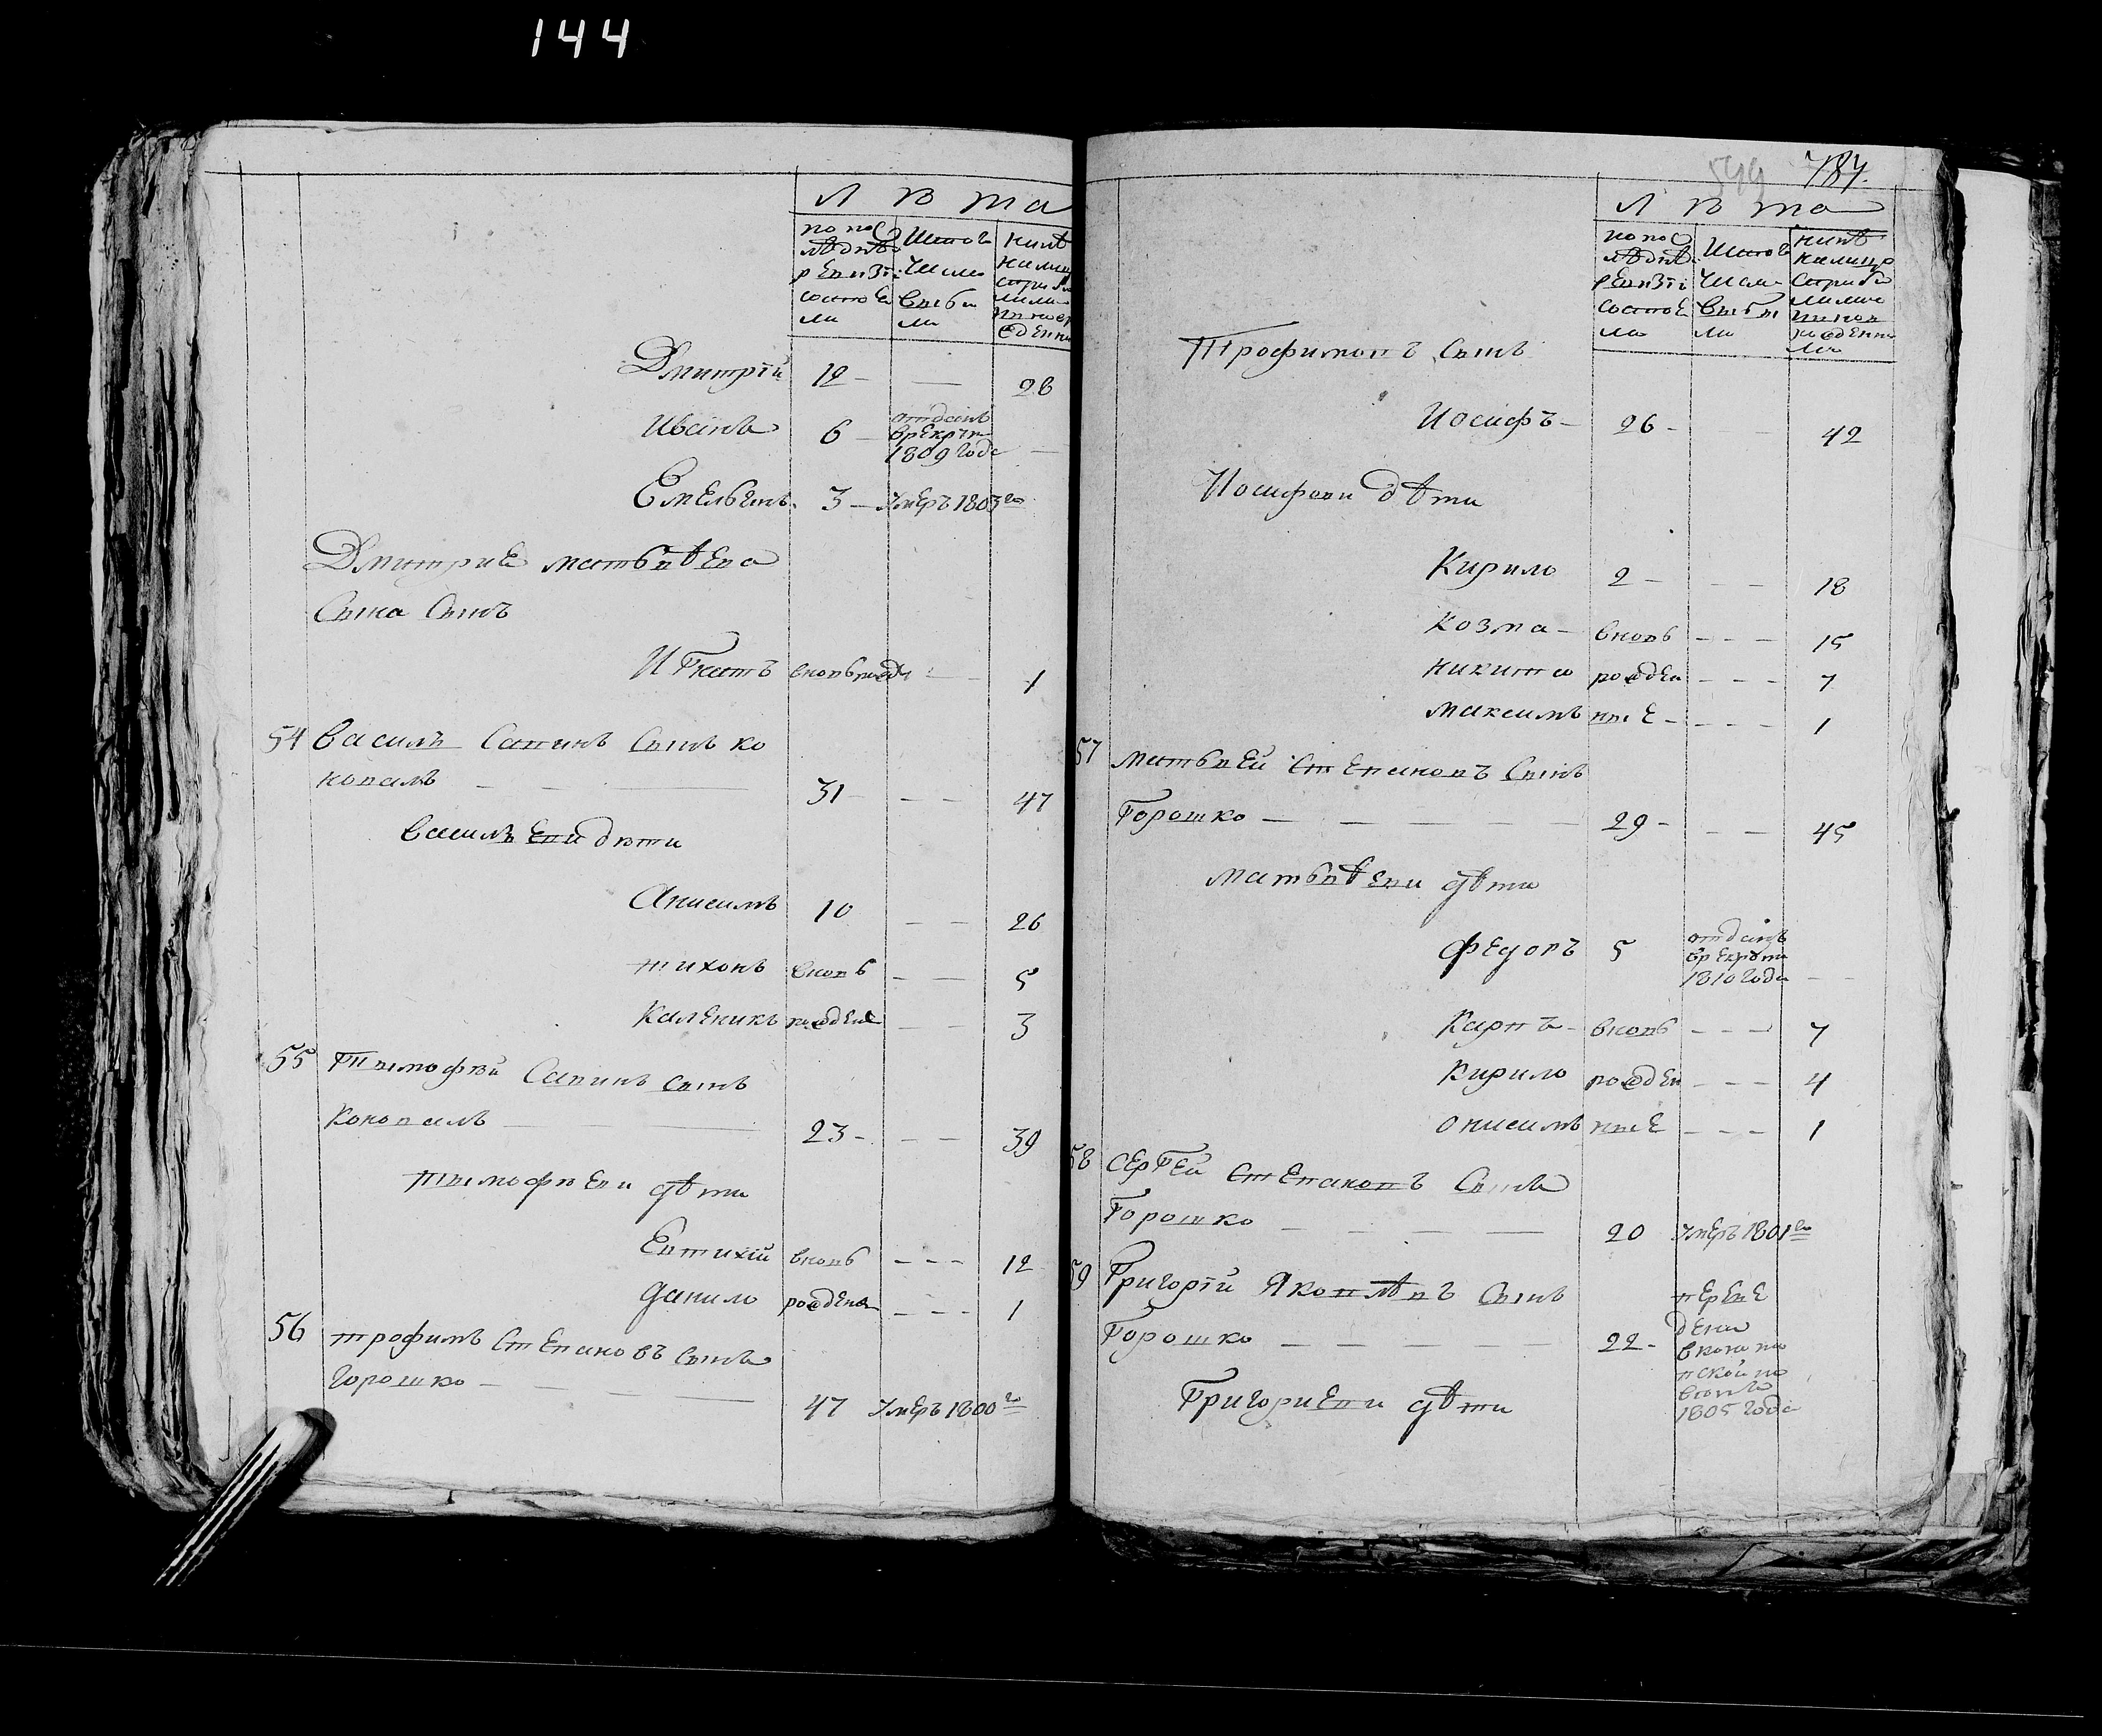 144
Л ѣ та
по пос
лѣднѣ
ревизі
состоя
ли
Изтого
числа
выбы
ли
нынѣ
Дмитрій 12 — — 28
Иванъ 6 — отданъ
врекрут
1809 года —
Емельянъ 3 — умеръ 1803 го
Дмитрия матвѣева
Сына Сынъ
Игнатъ вновь рожд — 1
54 Василь Савинъ Сынъ ко
новалъ — — — 31 — — 47
Василъеви дѣти
Анисимъ 10 — — 26
тихонъ вновь — — 5
Каленикъ рожденые — — 3
55 Тымофѣй Савинъ сынъ
Коновалъ — 23 — — — 39
тымофѣеви дѣти
Евтихій вновь — — — 12
данило рожденые — — — 1
56 трофимъ Степановъ сынъ
Горошко — — — — 47 умеръ 1800 го
549 784.
Л ѣ та
по пос
лѣднѣ
ревизі
состоя
ли
Изтого
числа
выбы
ли
нынѣ
налицо
Трофимовъ Сынъ
Иосифъ — 26 — — — 42
Иосифови дѣти
Кирило 2 — — — 18
Козма — вновь — — — 15
никита рожден — — — 7
максимъ ные — — — 1
57 матвѣей Степановъ Сынъ
Горошко — — — — — 29 — — — 45
матвѣеви дѣти
федоръ 5 отданъ
врекрута
1810 года — —
Карпъ — вновь — — — 7
Кирило рожден — — — 4
онисимъ ные — — — 1
58 Сергей Степановъ Сынъ
Горошко — — — — 20 умеръ 1801 го
59 Григорій Яковлѣвъ Сынъ
Горошко — — — — — 22 — переве
денъ
1805 года
Григориеви дѣти